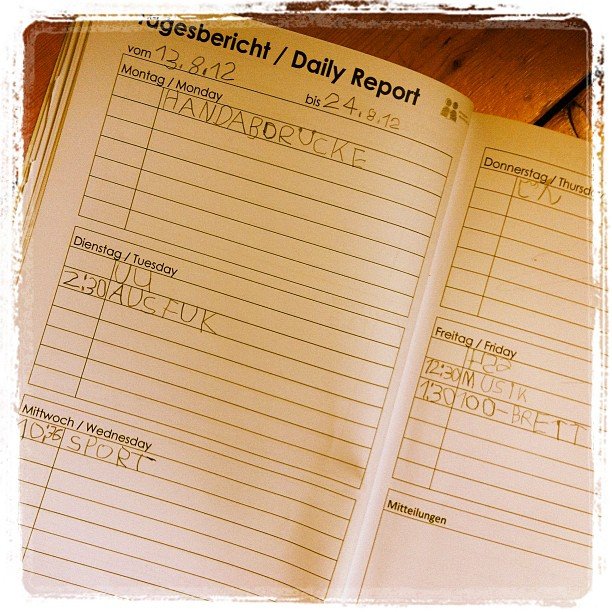 Tagesbericht / Daily Report
vom 13.8.12 bis 24.8.12
Montag / Monday
HANDABDRUCKE
Dienstag / Tuesday
2:30 AUSFUK
Mittwoch / Wednesday
10:35 SPORT
Donnerstag / Thursd
Freitag / Friday
12:30 MUSIK
1:30 100-BRETT
Mitteilungen